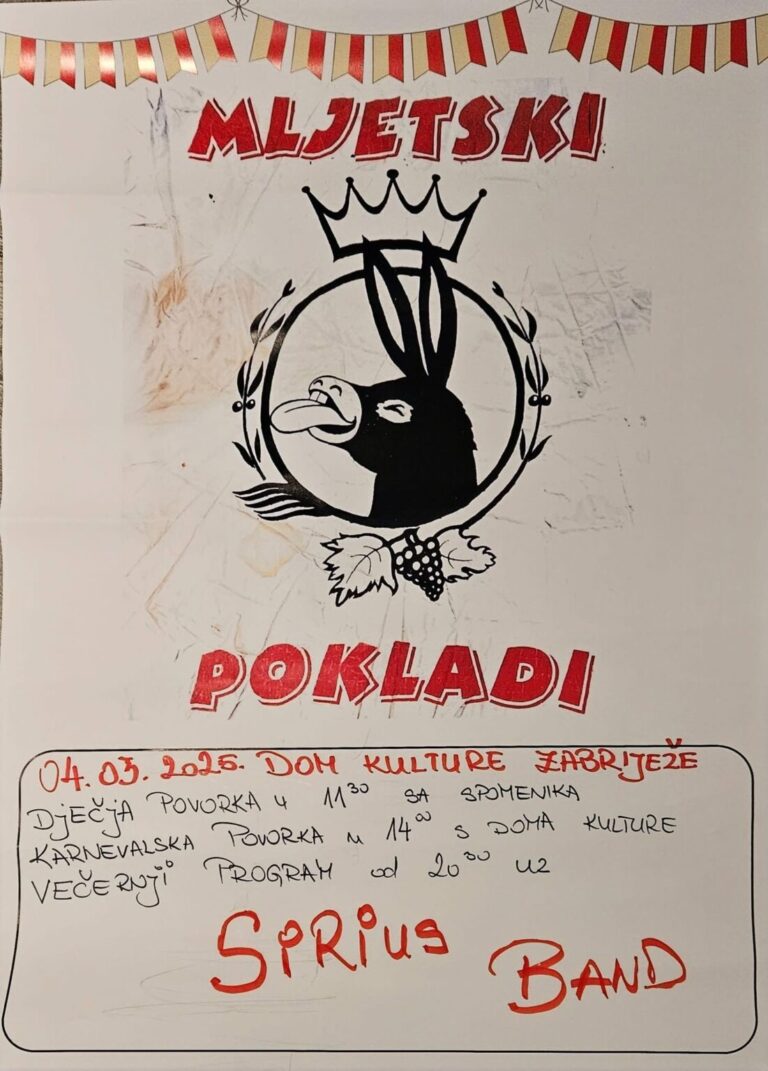 MLJETSKI
POKLADI
04.03.2025. DOM KULTURE ZABRIJEŽE
DJEČJA POVORKA u 11³⁰ SA SPOMENIKA
KARNEVALSKA POVORKA u 14⁰⁰ S DOMA KULTURE
VEČERNJI PROGRAM od 20³⁰ uz
SiRius BAND